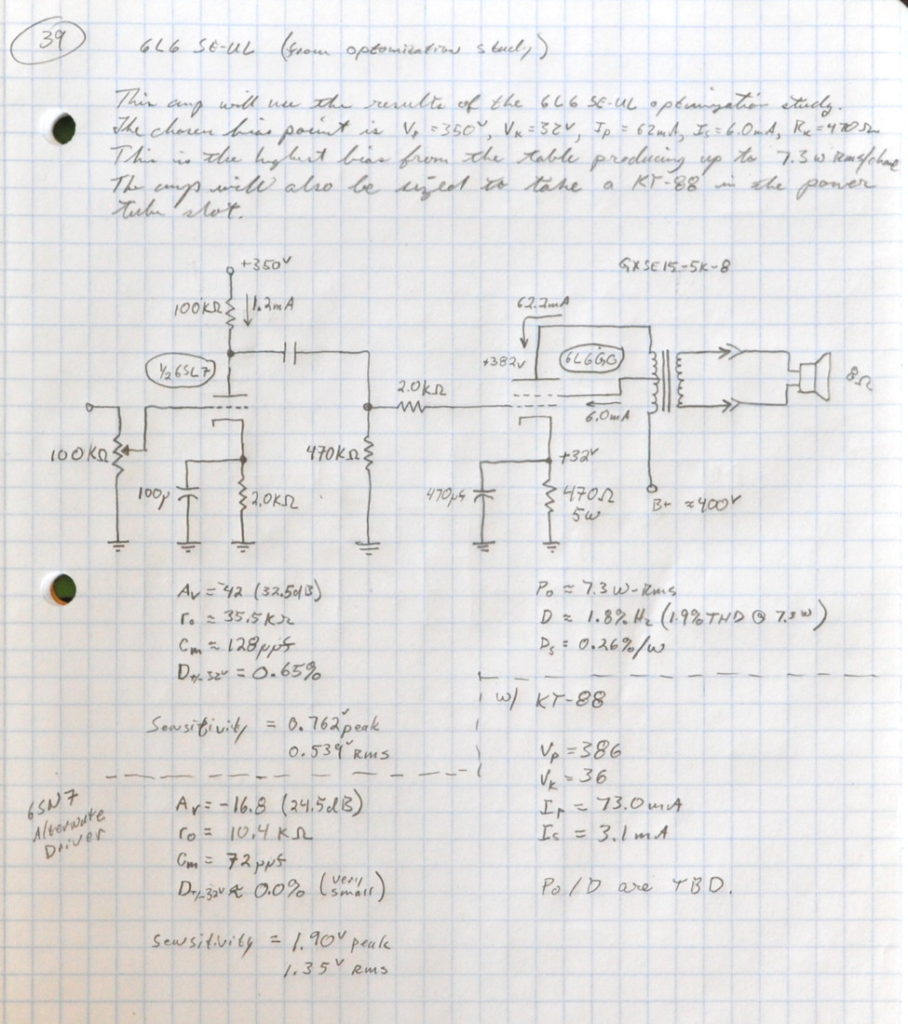 39
6L6 SE-UL (from optomization study)
This amp will use the results of the 6L6 SE-UL optimization study.
The chosen bias point is Vp = 350V, Vk = 32V, Ip = 62mA, Is = 6.0mA, Rk = 470Ω
This is the highest bias from the table producing up to 7.3W RMS/channel
The amps will also be sized to take a KT-88 in the power
tube slot.
+350V
GXSE15-5K-8
100KΩ
1.2mA
62.2mA
½6SL7
+382V
6L6GC
8Ω
2.0KΩ
6.0mA
100KΩ
470KΩ
+32V
100μ
2.0KΩ
470μf
470Ω
5W
B+ ≈400V
Av = -42 (32.5dB)
ro ≈ 35.5KΩ
Cm ≈ 128μμf
D+/-32V = 0.65%
Sensitivity = 0.762V peak
0.539V RMS
Po ≈ 7.3 W-RMS
D ≈ 1.8% H2 (1.9% THD @ 7.3W)
Ds = 0.26%/W
w/ KT-88
Vp = 386
Vk = 36
Ip = 73.0mA
Is = 3.1mA
Po/D are TBD.
6SN7
Alternate
Driver
Av = -16.8 (24.5dB)
ro = 10.4KΩ
Cm = 72μμf
D+/-32V ≈ 0.0% (very small)
Sensitivity = 1.90V peak
1.35V RMS